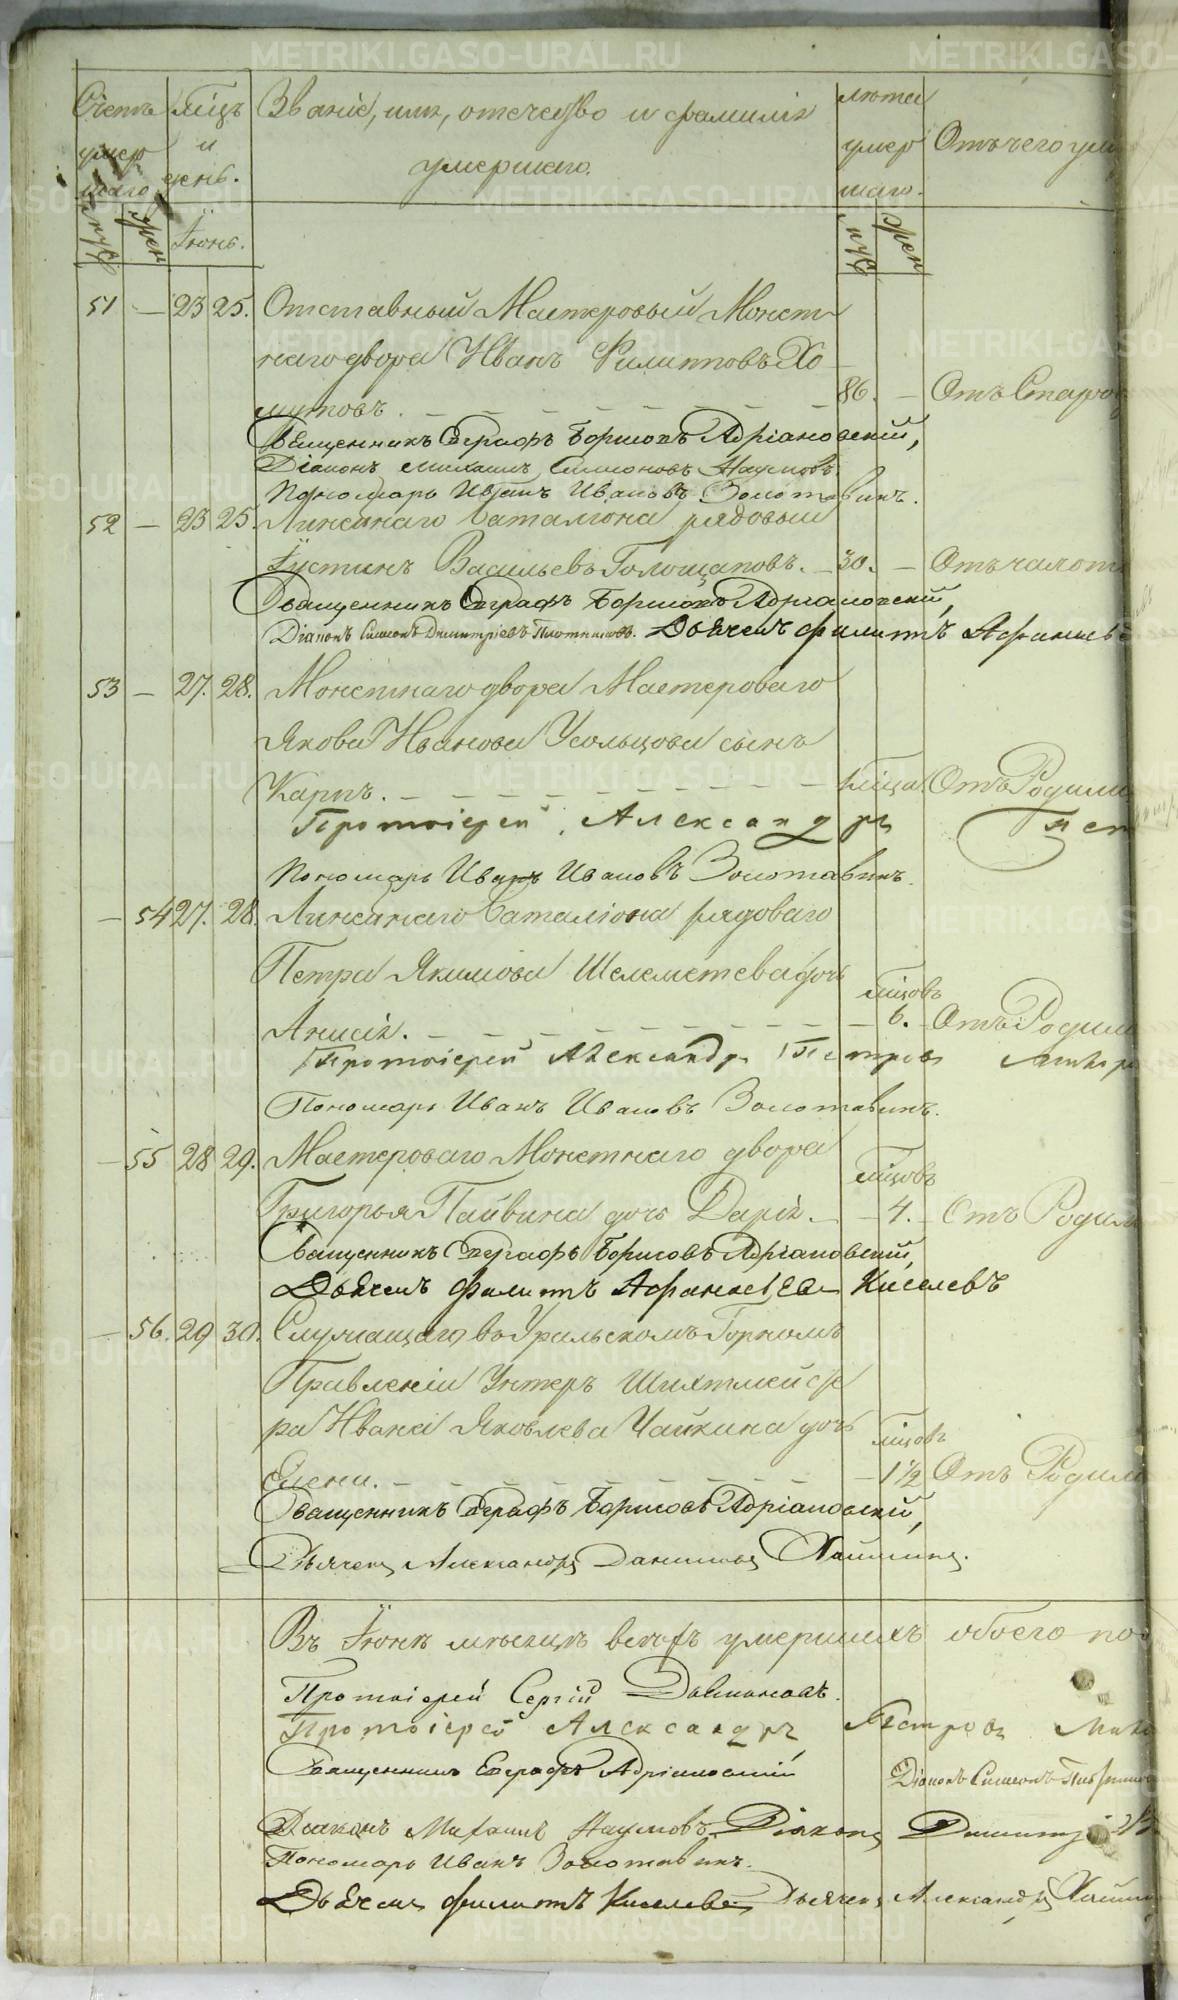 METRIKI.GASO-URAL.RU
Счетъ умершаго. муж жен
Мѣцъ и день. Іюнь.
Званіе, имя, отечество и фамилія умершаго.
лѣта умершаго. муж жен
Отъ чего
51 — 23 25. Отставный Мастеровый Монет
наго двора Иванъ Филипповъ Хо
мутовъ. 86. — Отъ Старос
Священникъ Евграфъ Борисовъ Адріановскій,
Діаконъ Михаилъ Симоновъ Наумовъ
Пономарь Иванъ Ивановъ Золотавинъ.
52 — 23 25. Линейнаго баталіона рядовый
Іустинъ Васильевъ Голощаповъ. — 30. — Отъ чахот
Священникъ Евграфъ Борисовъ Адріановскій,
Діаконъ Симеонъ Димитріевъ Плотниковъ. Дьячекъ Филиппъ Афанасье
53 — 27. 28. Монетнаго двора Мастероваго
Якова Иванова Усольцова сынъ
Карпъ. — 1 мѣца. Отъ Родими
Протоіерей Александръ Пет
Пономарь Иванъ Ивановъ Золотавинъ.
— 54 27. 28. Линейнаго баталіона рядоваго
Петра Якимова Шелеметева дочь
Анисія. — мѣцовъ 6. — Отъ Родим
Протоіерей Александръ Петровъ
Пономарь Иванъ Ивановъ Золотавинъ.
— 55 28 29. Мастероваго Монетнаго двора
Григорья Пайвина дочь Дарія. — мѣцовъ 4. — Отъ Родим
Священникъ Евграфъ Борисовъ Адріановскій,
Дьячекъ Филиппъ Афанасьевъ Киселевъ
— 56. 29 30. Служащаго въ Уральскомъ Горномъ
Правленіи Унтеръ Шихтмейсте
ра Ивана Яковлева Чайкина дочь
Елена. — мѣцовъ 1 ½ Отъ Родим
Священникъ Евграфъ Борисовъ Адріановскій,
Дьячекъ Александръ Даниловъ
Въ Іюнѣ мѣсяцѣ всѣхъ умершихъ обоего по
Протоіерей Сергій
Протоіерей Александръ Петровъ
Священникъ Евграфъ Адріановскій
Діаконъ Симеонъ
Діаконъ Михаилъ Наумовъ. Діаконъ Димитрі
Пономарь Иванъ Золотавинъ.
Дьячекъ Филиппъ Киселевъ Дьячекъ Александръ